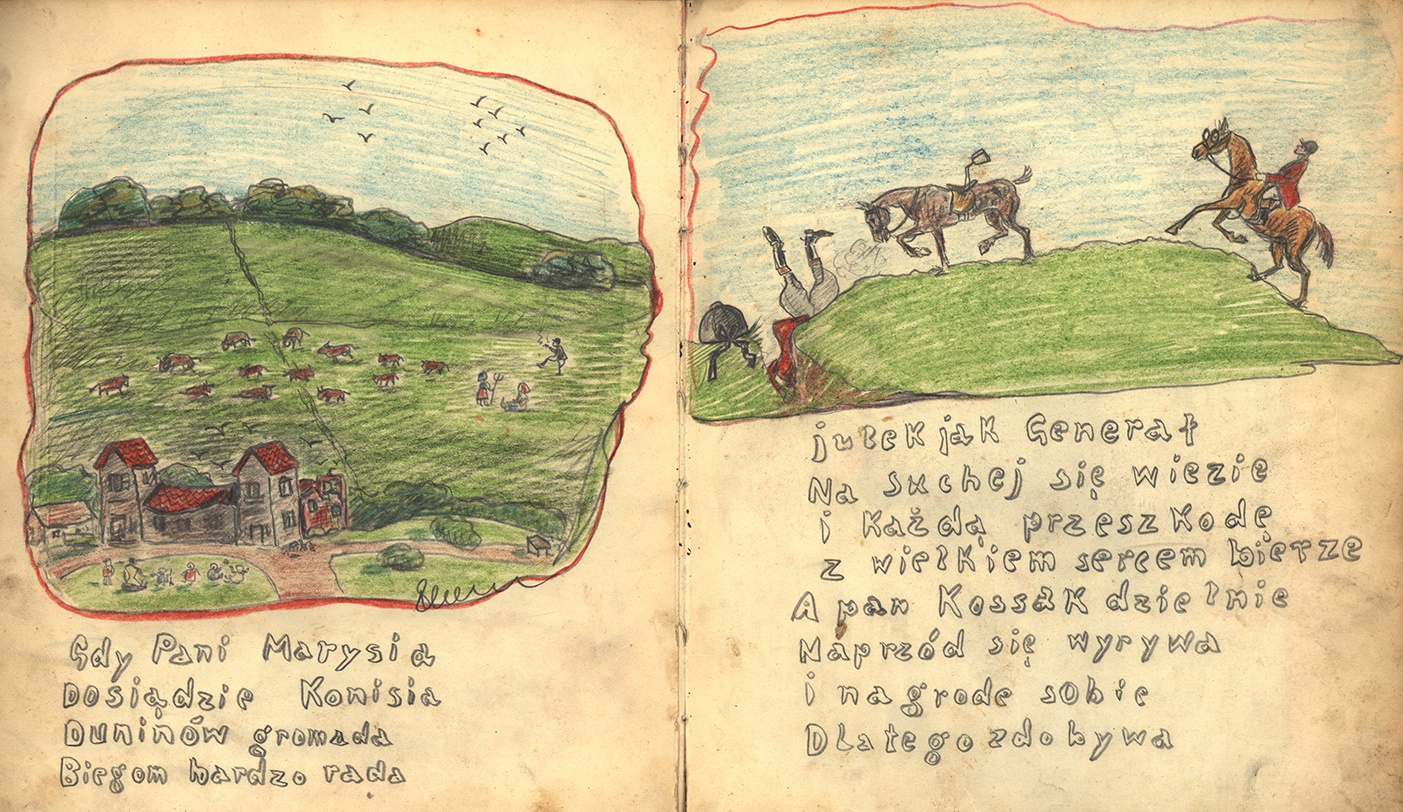 Gdy Pani Marysia
Dosiądzie Konisia
Duninów gromada
Biegom bardzo rada
jułek jak Generał
Na suchej się wiezie
i Każdą przeszkodę
z wielkiem sercem bierze
A pan Kossak dzielnie
Naprzód się wyrywa
i nagrode sobie
Dlatego zdobywa